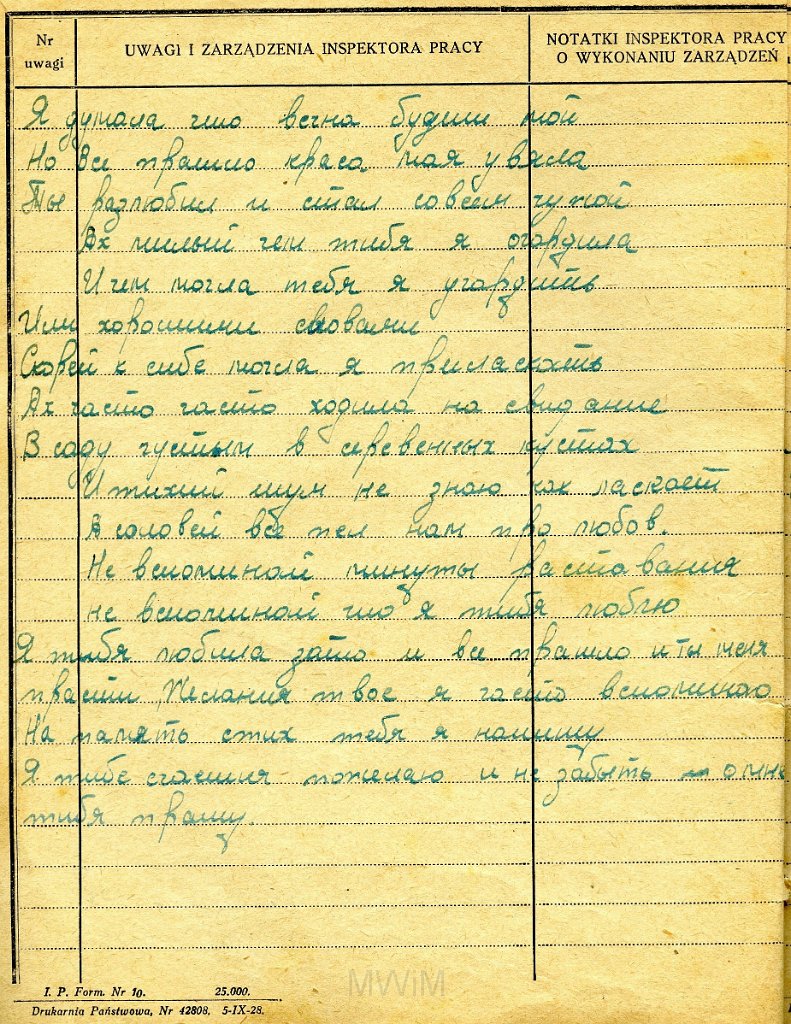 Nr uwagi
UWAGI I ZARZĄDZENIA INSPEKTORA PRACY
NOTATKI INSPEKTORA PRACY
O WYKONANIU ZARZĄDZEŃ
Я думала что вечна будеш мой
Но все прашло краса мая увяла
Ты разлюбил и стал совсем чужой
Ах милый чем тибя я огардила
И чем могла тебя я угардить
Или хорошими словами
Скорей к сибе могла я приласкать
Ах часто часто ходила на свидание
В саду густым в серевенных кустах
И тихий шум не знаю как ласкает
А соловей все пел нам про любов.
Не вспоминай минуты раставания
не вспоминай что я тибя люблю
Я тибя любила зато и все прашло и ты меня
прасти, Желания твое я часто вспоминаю
На память стих тебя я напишу
Я тибе счасшия пожелаю и не забыть о мне
тибя прашу.
I. P. Form. Nr 10. 25.000.
Drukarnia Państwowa, Nr 42808, 5-IX-28.
MWiM